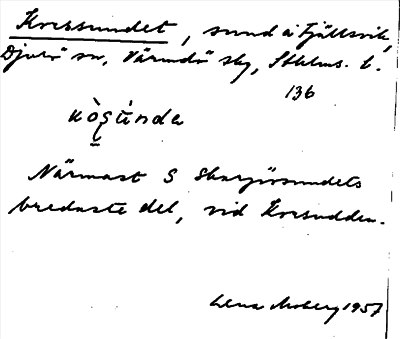 Korssundet, sund å Fjällsvik,
Djurö sn, Värmdö skg, Sthlms. l.
136
Närmast S Skarpösundets
bredaste del, vid Korsudden.
Lena Moberg 1957